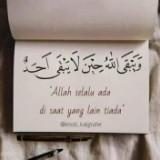 وَيَبْقَى اللّٰهُ حِيْنَ لَا يَبْقَى أَحَدٌ
"Allah selalu ada
di saat yang lain tiada"